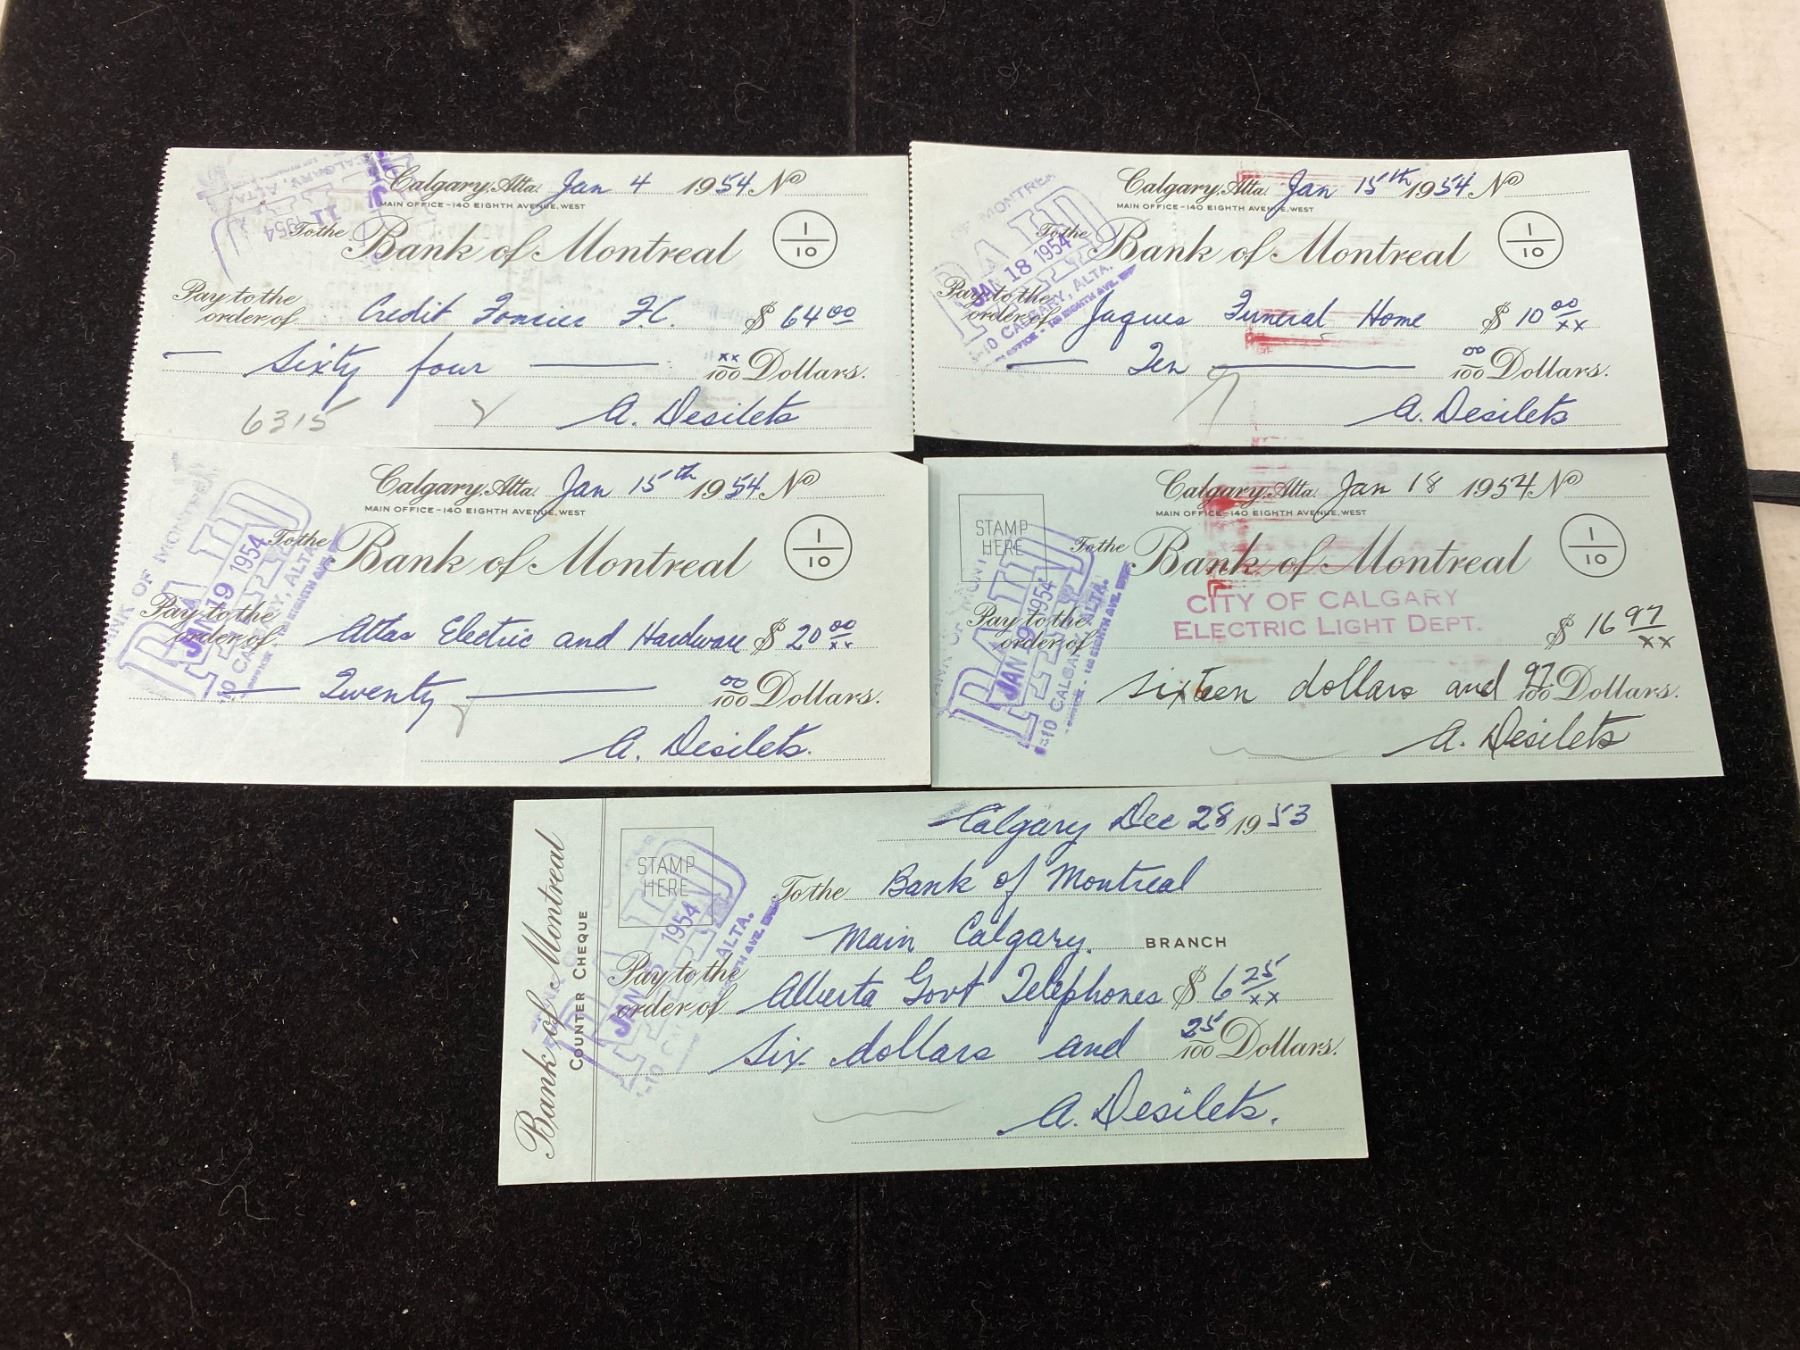 Calgary, Alta. Jan 4 1954 No
MAIN OFFICE - 140 EIGHTH AVENUE, WEST
To the Bank of Montreal 1/10
Pay to the order of Credit Foncier F.C. $ 64 00
Sixty four xx/100 Dollars.
6315 A. Desilets
CALGARY, ALTA.
11 1954
Calgary, Alta. Jan 15th 1954 No
MAIN OFFICE - 140 EIGHTH AVENUE, WEST
To the Bank of Montreal 1/10
Pay to the order of Jaques Funeral Home $ 10 00/xx
Ten 00/100 Dollars.
A. Desilets
MONTREAL
PAID
JAN 18 1954
CALGARY, ALTA.
Calgary, Alta. Jan 15th 1954 No
MAIN OFFICE - 140 EIGHTH AVENUE, WEST
To the Bank of Montreal 1/10
Pay to the order of Atlas Electric and Hardware $ 20 00/xx
Twenty 00/100 Dollars.
A. Desilets.
BANK OF MONTREAL
PAID
JAN 19 1954
CALGARY, ALTA.
Calgary, Alta. Jan 18 1954 No
MAIN OFFICE - 140 EIGHTH AVENUE, WEST
STAMP HERE
To the Bank of Montreal 1/10
CITY OF CALGARY
Pay to the order of ELECTRIC LIGHT DEPT. $ 16 97/xx
Sixteen dollars and 97/100 Dollars.
A. Desilets
PAID
JAN 19 1954
CALGARY, ALTA.
Bank of Montreal
COUNTER CHEQUE
STAMP HERE
Calgary Dec 28 1953
To the Bank of Montreal
Main Calgary. BRANCH
Pay to the order of Alberta Govt Telephones $ 6 25/xx
Six dollars and 25/100 Dollars.
A. Desilets.
PAID
JAN 1954
ALTA.